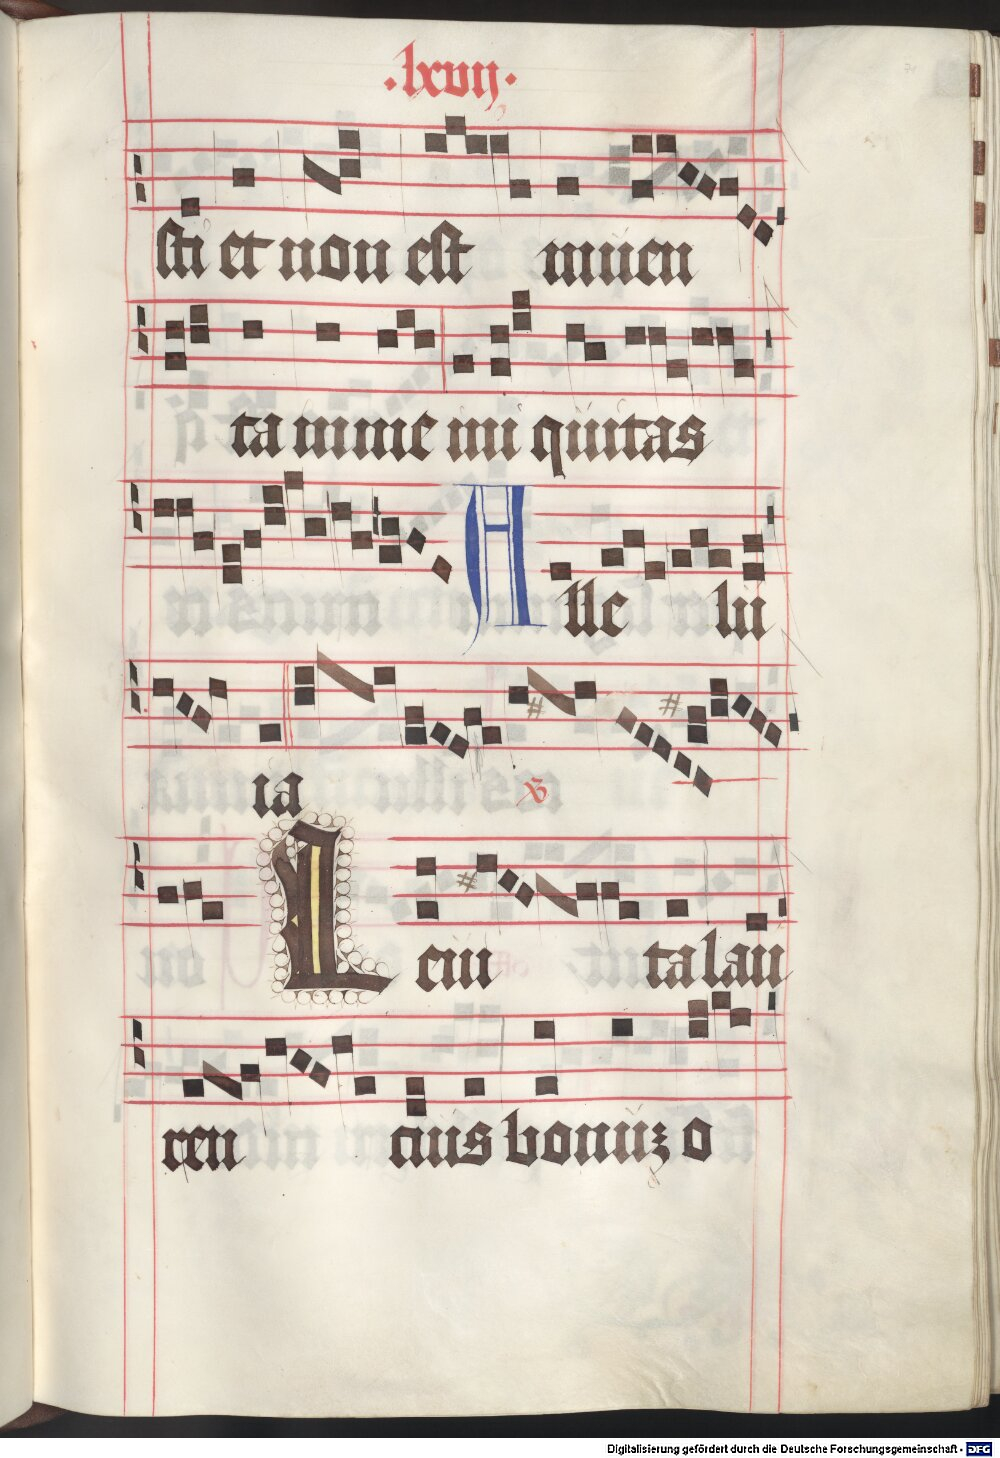 ·lxvij·
sti et non est inuen
ta in me ini quitas
Alle lu
ia ℣
Leui ta lau
ren cius bonuʒ o
Digitalisierung gefördert durch die Deutsche Forschungsgemeinschaft - DFG